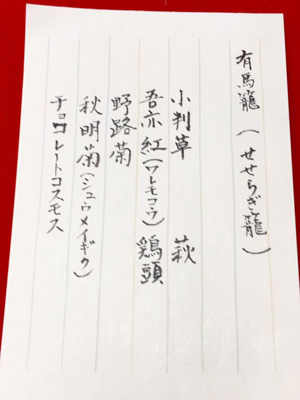 有馬籠(せせらぎ籠)
小判草 萩
吾亦紅(ワレモコウ)鶏頭
野路菊
秋明菊(シュウメイギク)
チョコレートコスモス